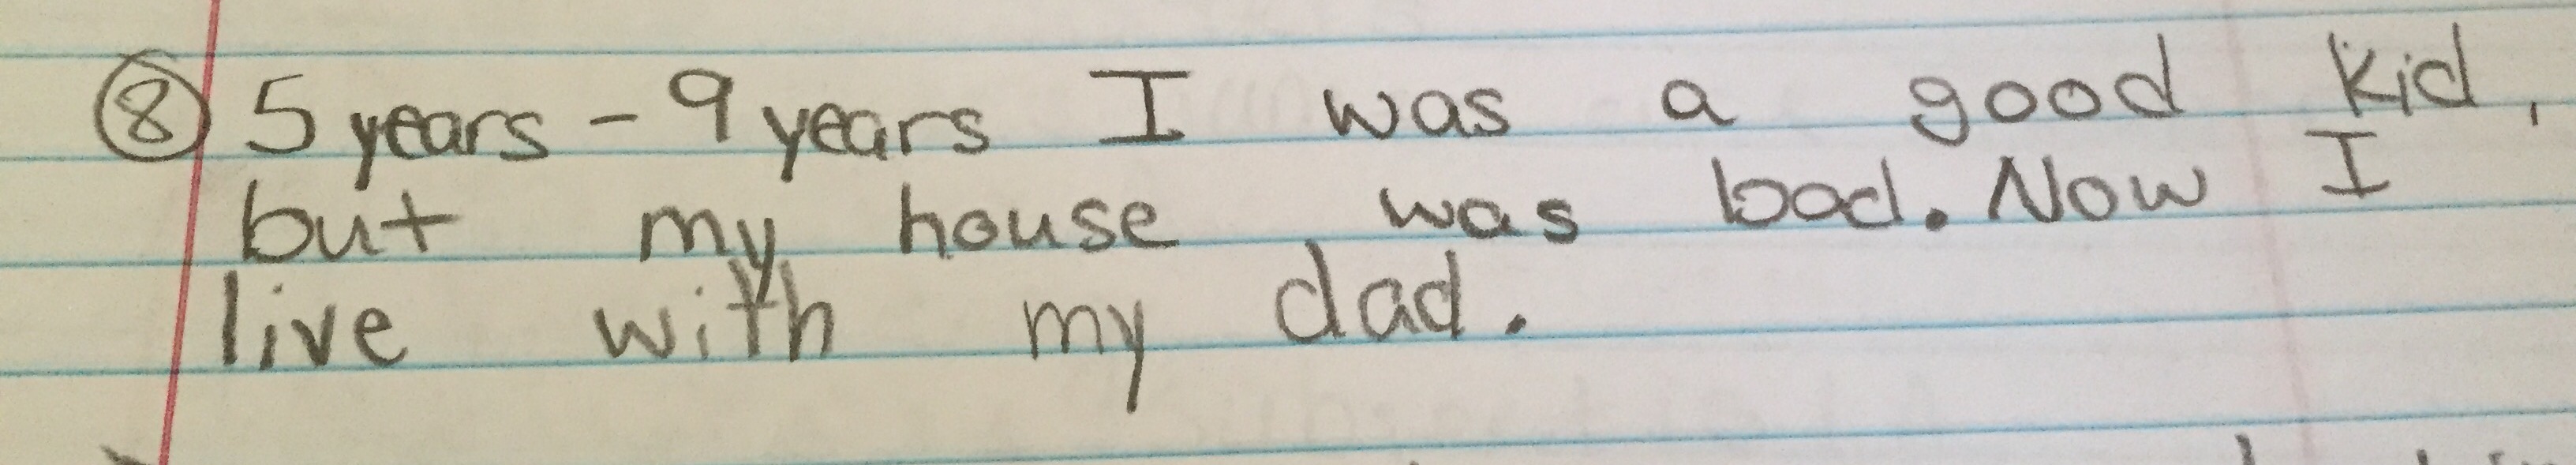 ⑧ 5 years - 9 years I was a good kid,
but my house was bad. Now I
live with my dad.